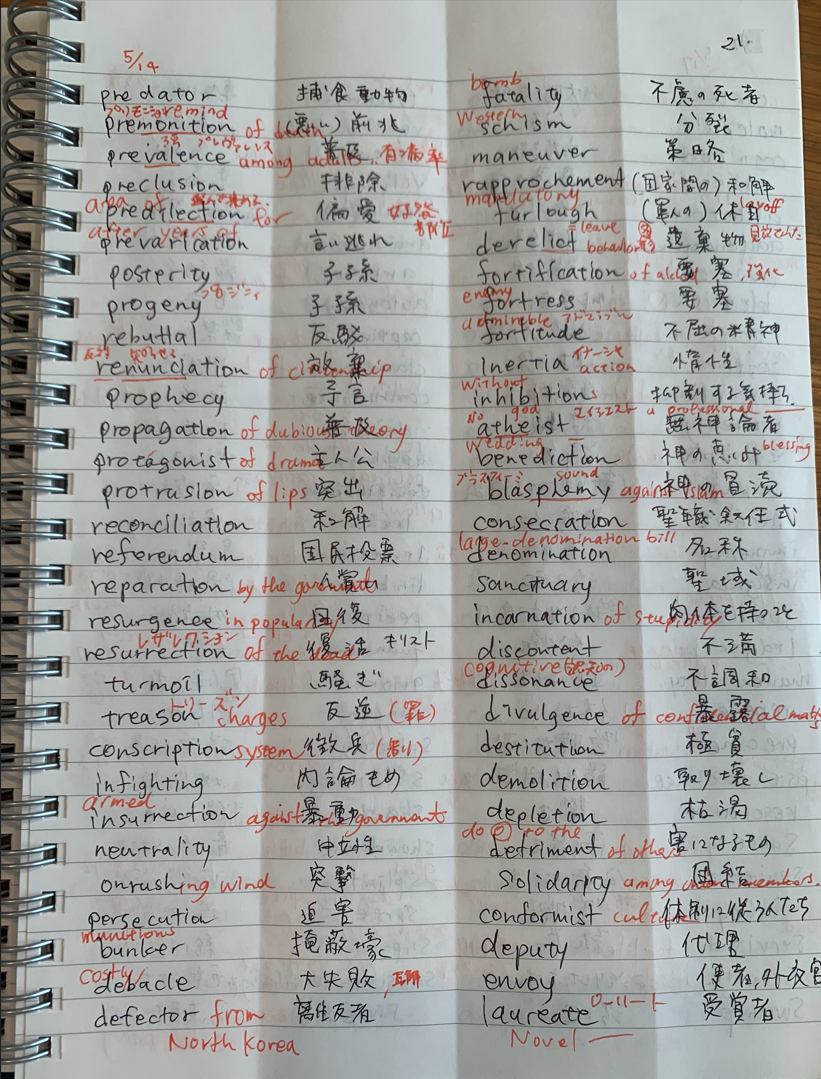 5/14
predator 捕食動物
remind
premonition of death (悪い)前兆
prevalence among adults 普及
preclusion 排除
area of
predilection for 偏愛
after years of
prevarication 言い逃れ
posterity 子子孫
progeny 子子孫
rebuttal 反駁
renunciation of citizenship 放棄
prophecy 予言
propagation of dubious theory 普及
protagonist of drama 主人公
protrusion of lips 突出
reconciliation 和解
referendum 国民投票
reparation by the government
resurgence in popularity 回復
レザレクション
resurrection of the dead 復活 キリスト
turmoil 騒ぎ
トリーズン
treason charges 反逆(罪)
conscription system 徴兵(制)
infighting 内論もめ
armed
insurrection against the government 暴動
neutrality 中立性
onrushing wind 突撃
persecution 迫害
munitions
bunker 掩蔽壕
costly
debacle 大失敗
defector from 離反者
North Korea
21.
bomb
fatality 不慮の死者
Western
schism 分裂
maneuver 策略
rapprochement (国家間の)和解
mandatory
furlough (軍人の)休暇 layoff
= leave
derelict behavior 遺棄物
fortification of 要塞, 強化
enemy
fortress 要塞
admirable
fortitude 不屈の精神
inertia イナーシャ action 惰性
without
inhibitions 抑制する気持ち
No god a professional
atheist 無神論者
wedding
benediction 神の恵み blessing
sound
blasphemy against Islam 神の冒涜
consecration 聖職叙任式
large-denomination bill
denomination 名称
sanctuary 聖域
incarnation of stupidity 肉体を持つこと
discontent 不満
cognitive (認知の)
dissonance 不調和
divulgence of confidential matters 暴露
destitution 極貧
demolition 取り壊し
depletion 枯渇
do to the
detriment of others 害になるもの
solidarity among members 団結
conformist culture 体制に従う人たち
deputy 代理
envoy 使者, 外交官
laureate ローリート 受賞者
Novel